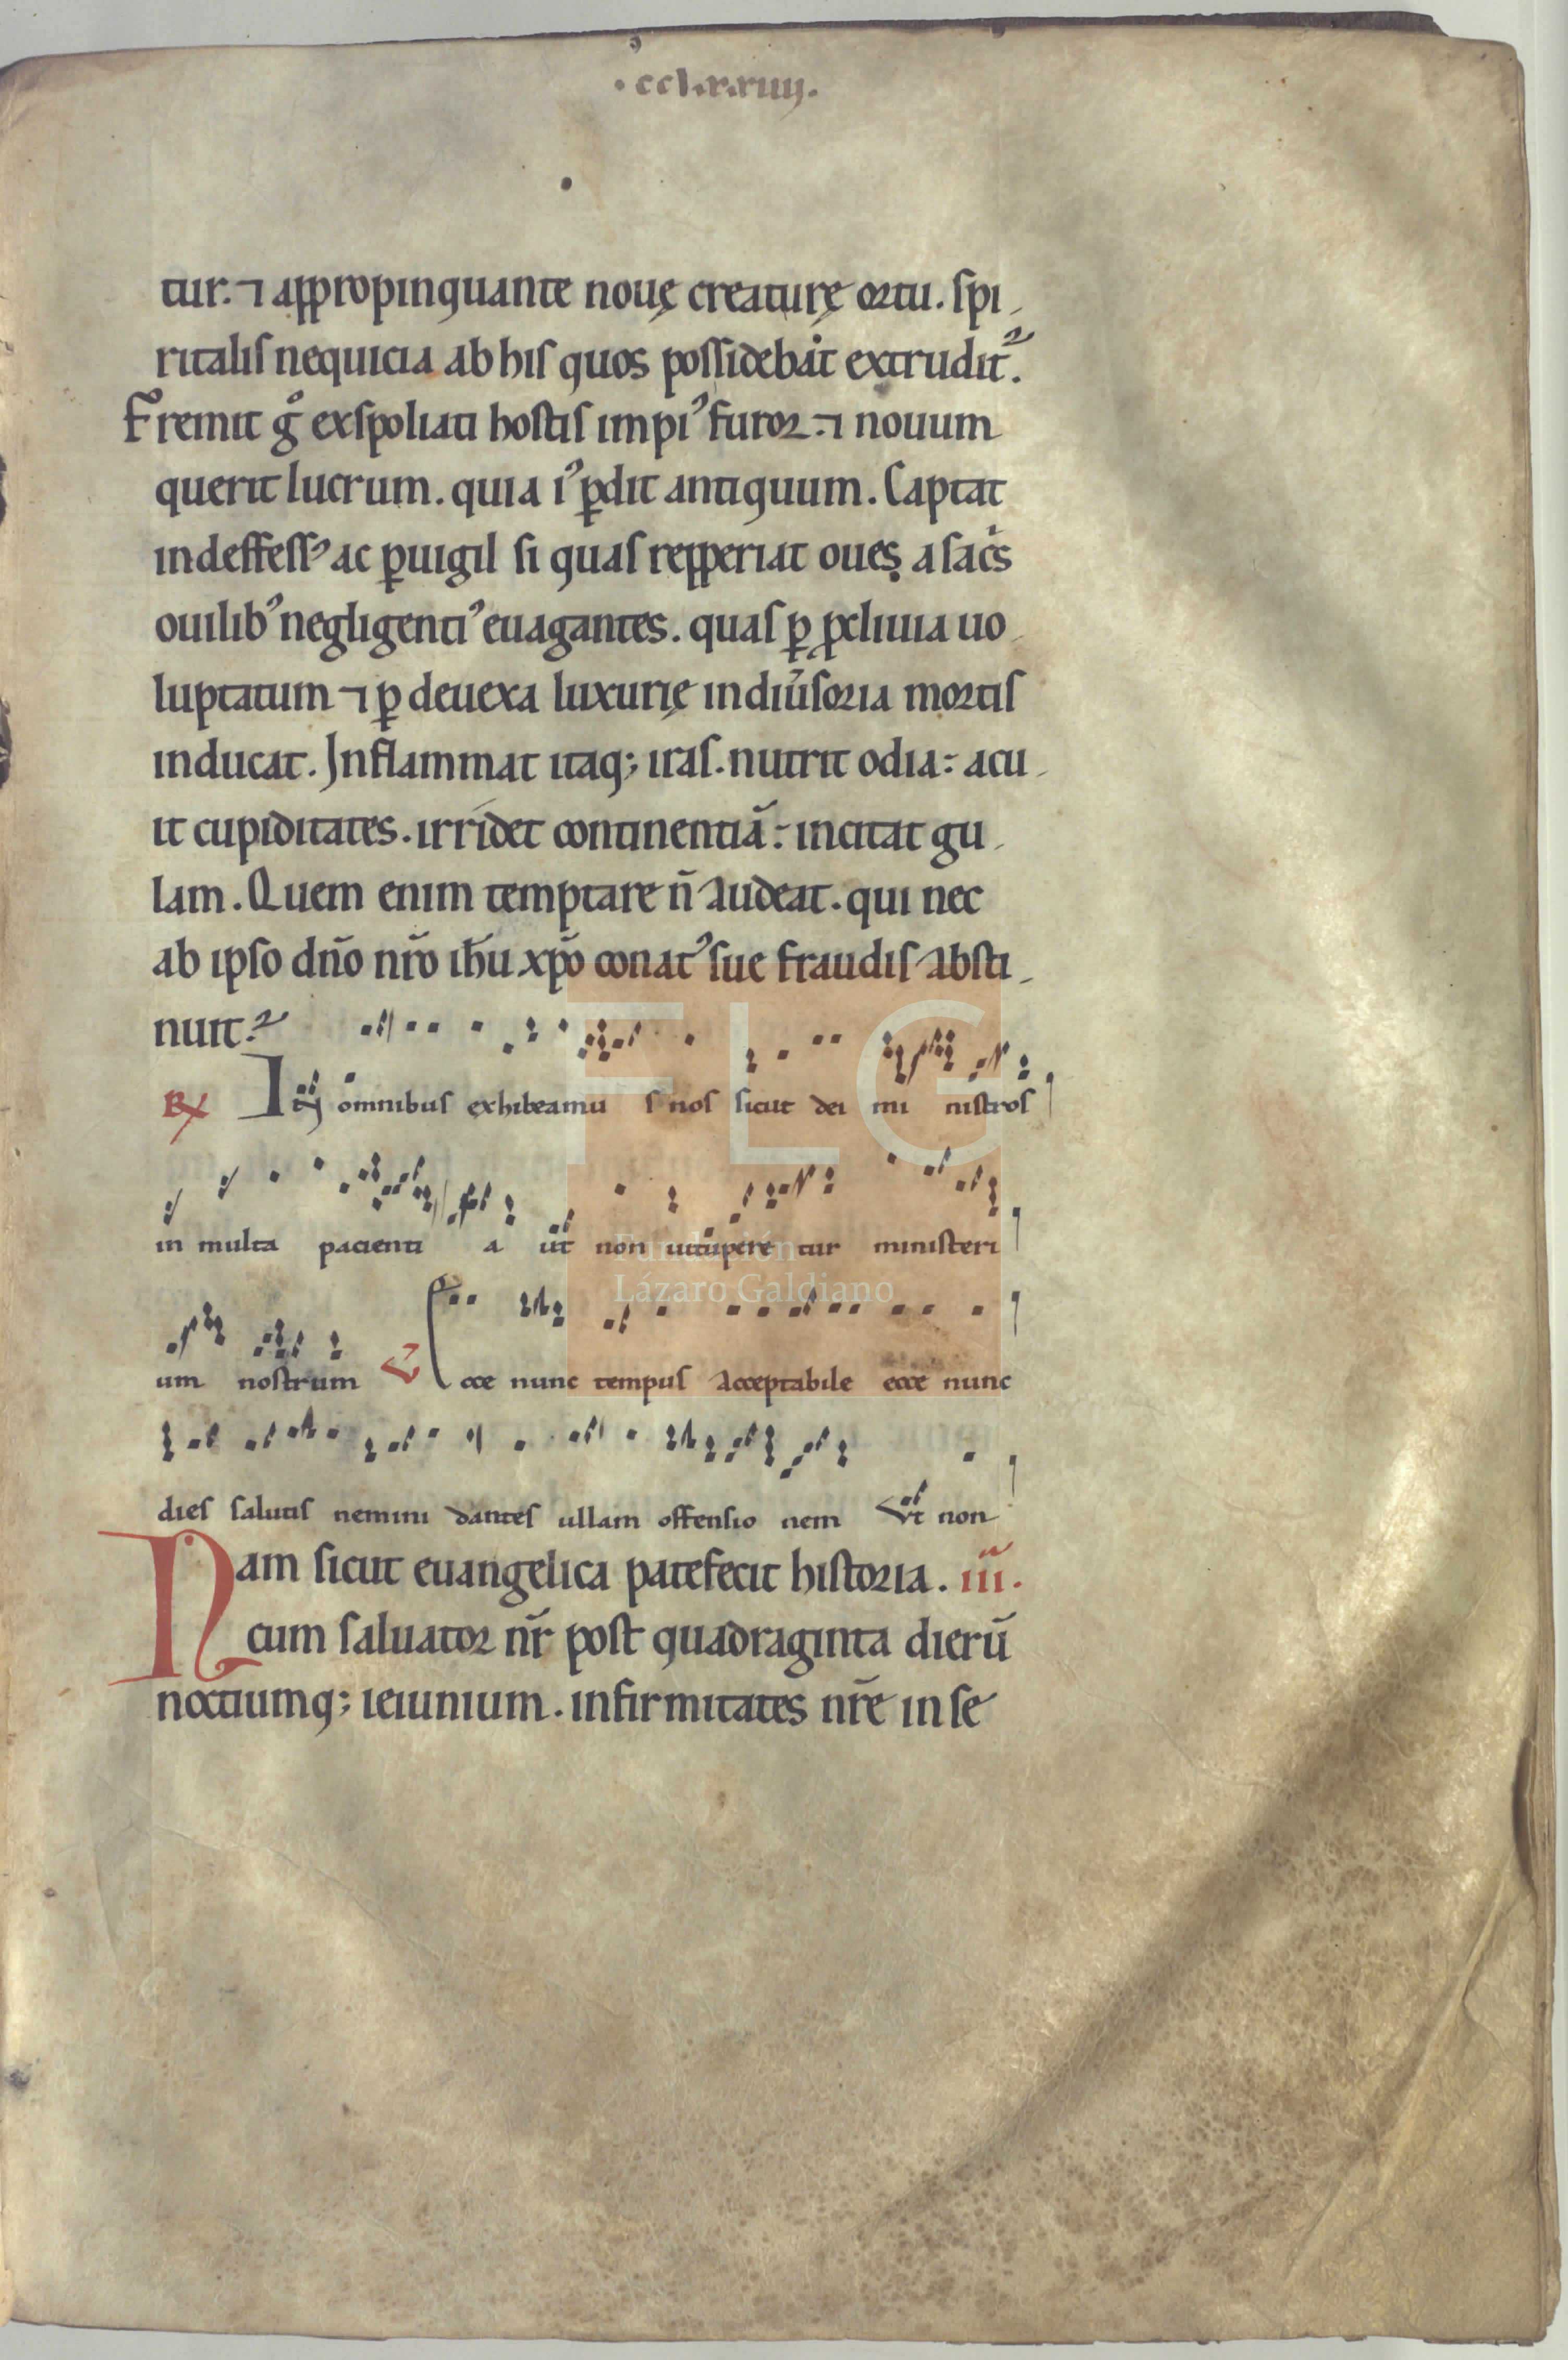 .cclxxiiij.
tur. ⁊ appropinquante nouę creaturę ortu. spi
ritalis nequicia ab his quos possidebat extrudit᷑.
Fremit gͦ exspoliati hostis impiꝰ furor. ⁊ nouum
querit lucrum. quia iꝰ ꝑdit antiquum. Captat
indeffessꝰ ac ꝑuigil si quas repperiat oues a sacͥs
ouilibꝰ negligentiꝰ euagantes. quas ꝑ ꝓcliuia uo
luptatum ⁊ ꝑ deuexa luxurię in diuẜoria mortis
inducat. Inflammat itaq; iras. nutrit odia: acu
it cupiditates. irridet continentiā: incitat gu
lam. Quem enim temptare n̄ audeat. qui nec
ab ipso dn̄o nr̄o ih̄u xp̄o conatꝰ sue fraudis absti
nuit?
R̷ In omnibus exhibeamu s nos sicut dei mi nistros
in multa pacienti a ut non uitupere tur ministeri
um nostrum V̷ Ecce nunc tempus acceptabile ecce nunc
dies salutis nemini dantes ullam offensio nem Vt non
Nam sicut euangelica patefecit historia. iii.
cum saluator nr̄ post quadraginta dierū
noctiumq; ieiunium. infirmitates nr̄e in se
FLG
Fundación
Lázaro Galdiano